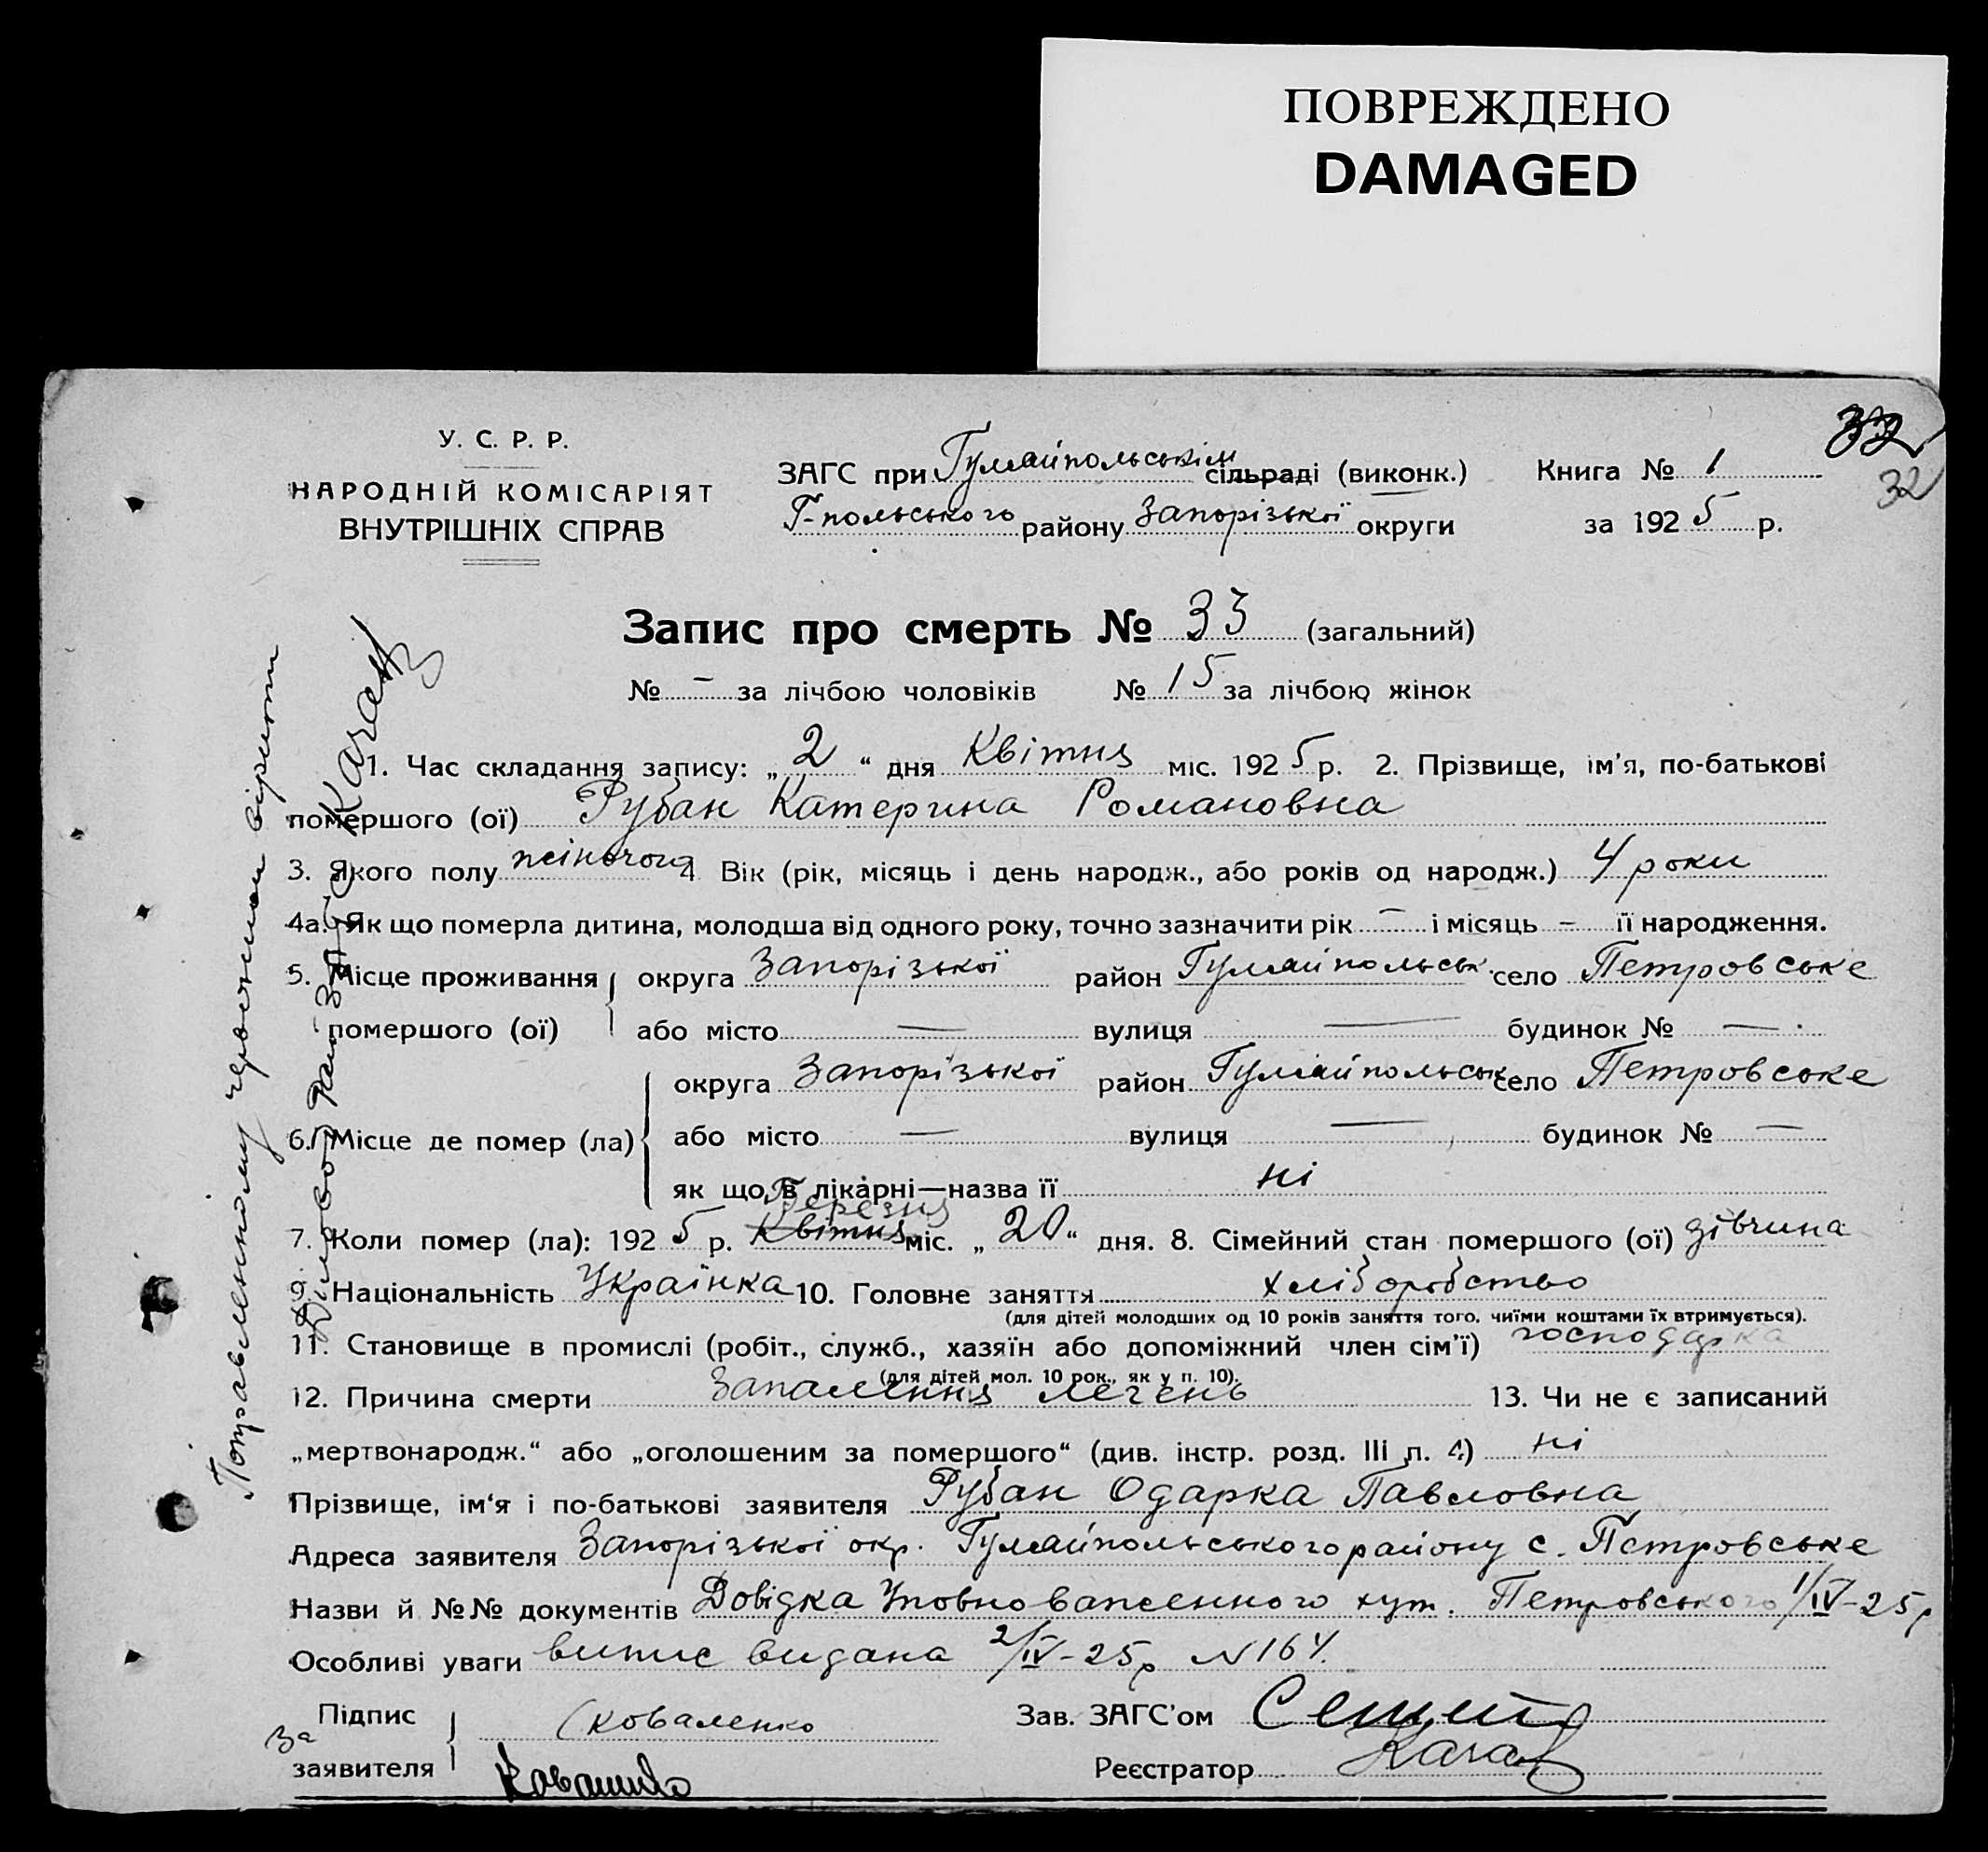 ПОВРЕЖДЕНО
DAMAGED
32
32
У. С. Р. Р.
НАРОДНІЙ КОМІСАРІЯТ
ВНУТРІШНІХ СПРАВ
ЗАГС при Гуляйпольськім сільраді (виконк.) Книга № 1
Г-польського району Запорізької округи за 1925 р.
Запис про смерть № 33 (загальний)
№ - за лічбою чоловіків № 15 за лічбою жінок
1. Час складання запису: „2“ дня Квітня міс. 1925 р. 2. Прізвище, ім'я, по-батькові
помершого (ої) Рубан Катерина Романовна
3. Якого полу жіночого 4 Вік (рік, місяць і день народж., або років од народж.) 4 роки
4а. Як що померла дитина, молодша від одного року, точно зазначити рік - і місяць - її народження.
5. Місце проживання округа Запорізької район Гуляйпольськ. село Петровське
помершого (ої) або місто — вулиця — будинок № —
6. Місце де помер (ла) округа Запорізької район Гуляйпольськ село Петровське
або місто — вулиця — будинок № —
як що в лікарні—назва її ні
Березня
7. Коли помер (ла): 1925 р. Квітня міс. „20“ дня. 8. Сімейний стан помершого (ої) дівчина
9. Національність Українка 10. Головне заняття хліборобство
(для дітей молодших од 10 років заняття того, чиїми коштами їх втримується).
11. Становище в промислі (робіт., служб., хазяїн або допоміжний член сім'ї) господарка
(для дітей мол. 10 рок., як у п. 10).
12. Причина смерти Запалення легень 13. Чи не є записаний
„мертвонародж.“ або „оголошеним за помершого“ (див. інстр. розд. III п. 4) ні
Прізвище, ім'я і по-батькові заявителя Рубан Одарка Павловна
Адреса заявителя Запорізької окр. Гуляйпольського району с. Петровське
Назви й №№ документів Довідка Уповноваженного хут. Петровського 1/IV-25р
Особливі уваги випис видана 2/IV-25р N 164.
За Підпис заявителя (Коваленко Зав. ЗАГС'ом
Коваленко Реєстратор
Поправленному червонилом вірити
Діловод ЗАГС